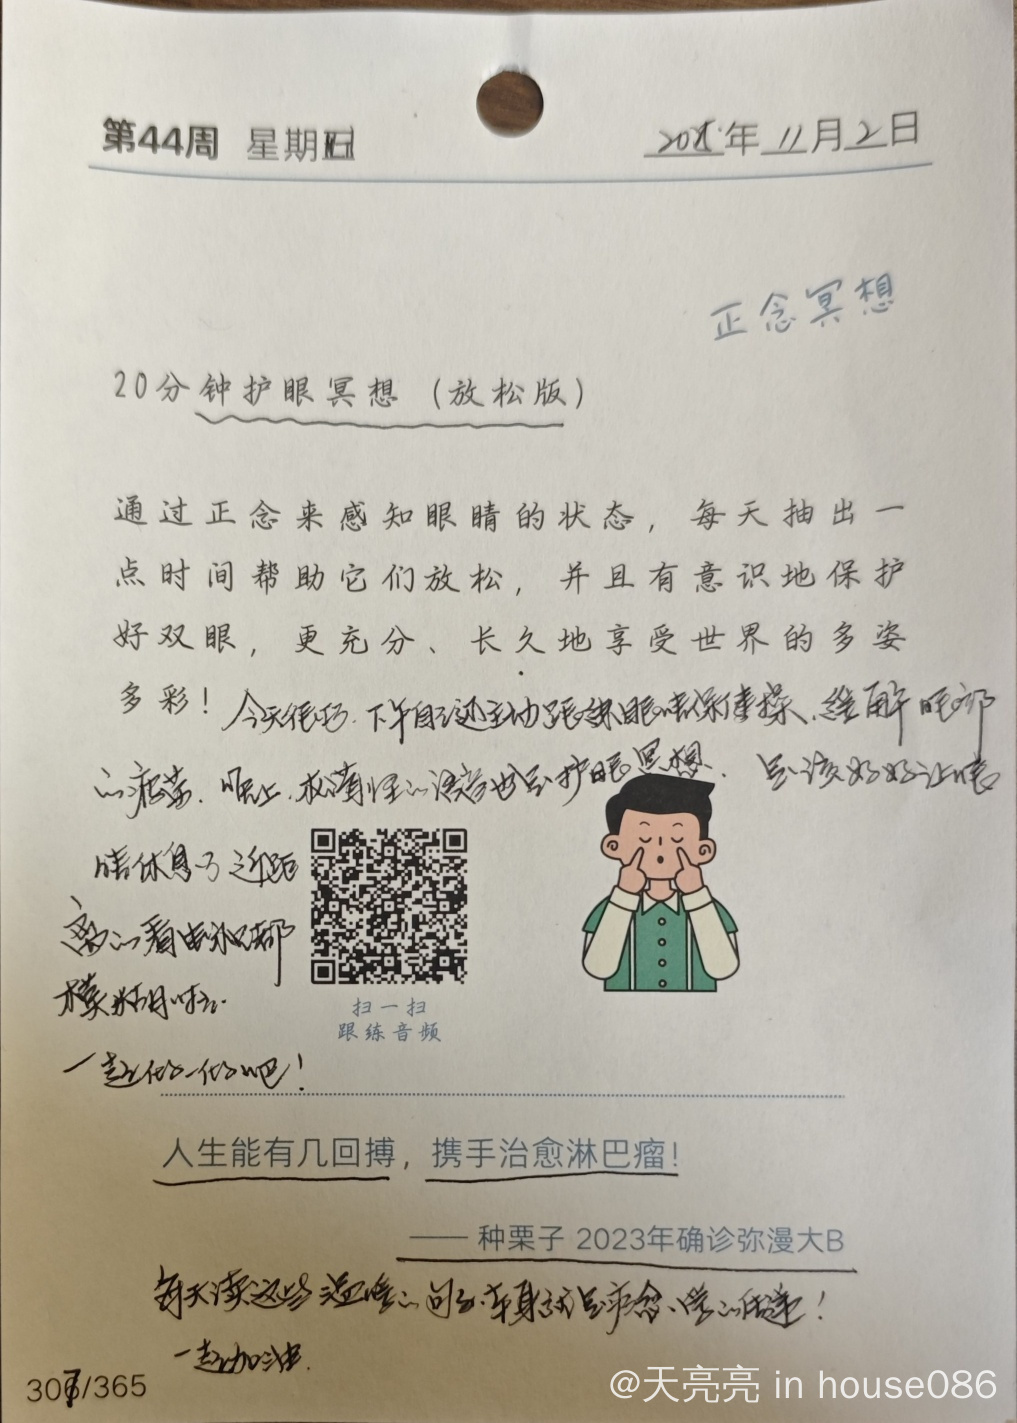 第44周 星期日
2025年11月2日
正念冥想
20分钟护眼冥想（放松版）
通过正念来感知眼睛的状态，每天抽出一
点时间帮助它们放松，并且有意识地保护
好双眼，更充分、长久地享受世界的多姿
多彩！今天很巧.下午自己还主动跟练眼睛保健操、缓解眼部
的疲劳.晚上.的语音也是护眼冥想.是该好好让眼
睛休息了近距
离的看都
模糊
一起做一做吧！
扫一扫
跟练音频
人生能有几回搏，携手治愈淋巴瘤！
—— 种栗子 2023年确诊弥漫大B
每天读这些温暖的句子.本身就是的传递！
一起加油.
307/365
@天亮亮 in house086